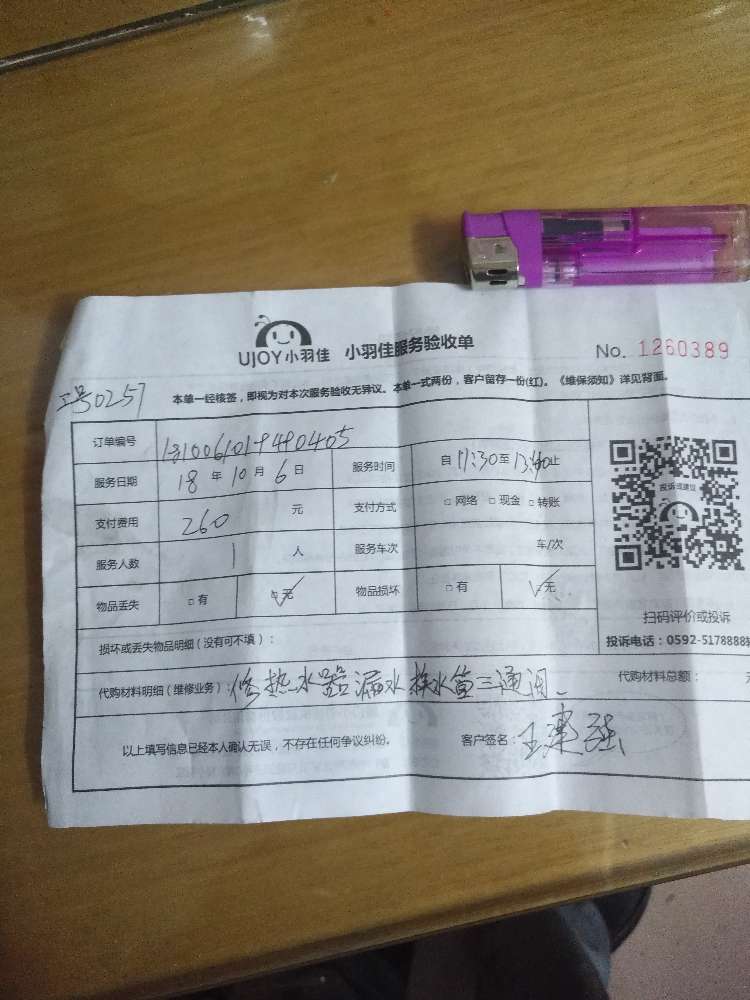 UJOY小羽佳 小羽佳服务验收单 No. 1260389
工号0257
本单一经核签，即视为对本次服务验收无异议。本单一式两份，客户留存一份(红)。《维保须知》详见背面。
订单编号
服务日期 18 年 10 月 6 日 服务时间 自 11:30 至 13:40 止
支付费用 260 元 支付方式 □ 网络 □ 现金 □ 转账
服务人数 1 人 服务车次 车/次
物品丢失 □ 有 □ 无 物品损坏 □ 有 □ 无
投诉或建议
扫码评价或投诉
投诉电话：0592-5178888
损坏或丢失物品明细（没有可不填）：
代购材料明细（维修业务）：修热水器漏水换水管三通阀 代购材料总额：
以上填写信息已经本人确认无误，不存在任何争议纠纷。 客户签名：